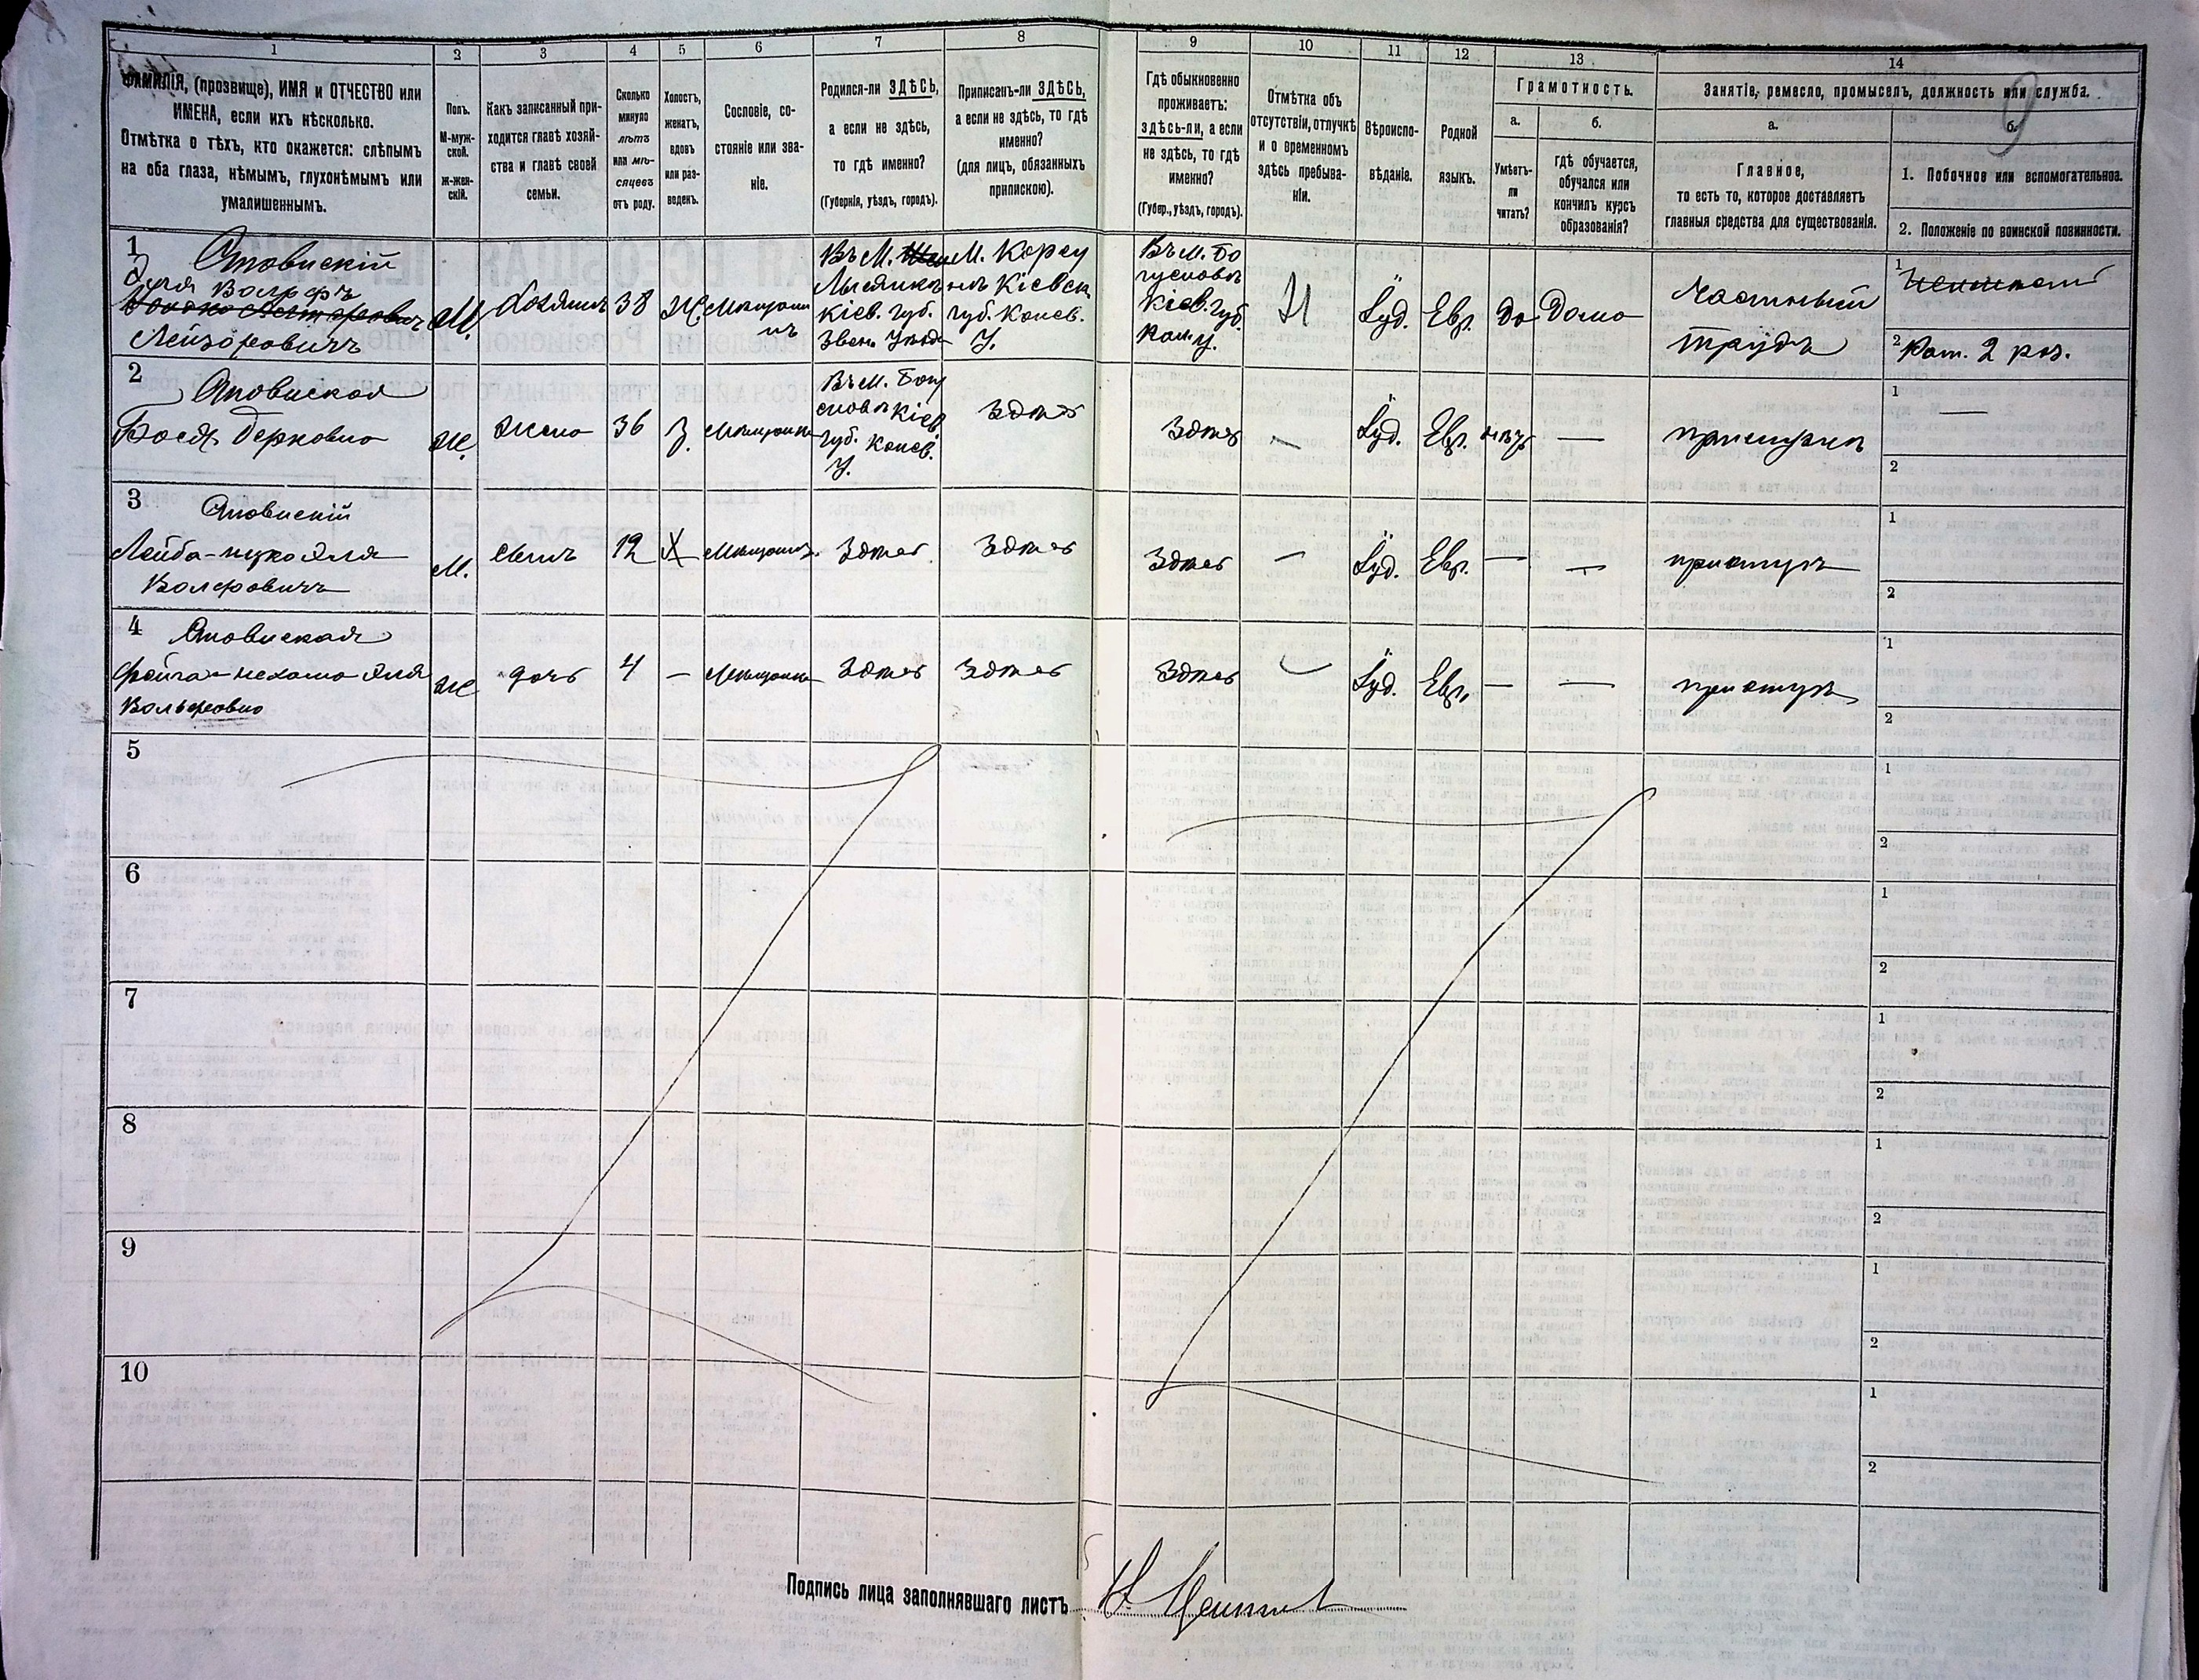 1 2 3 4 5 6 7 8 9 10 11 12 13 14
ФАМИЛІЯ, (прозвище), ИМЯ и ОТЧЕСТВО или
ИМЕНА, если ихъ нѣсколько.
Отмѣтка о тѣхъ, кто окажется: слѣпымъ
на оба глаза, нѣмымъ, глухонѣмымъ или
умалишеннымъ.
Полъ.
М-муж-
ской.
ж-жен-
скій.
Какъ записанный при-
ходится главѣ хозяй-
ства и главѣ своей
семьи.
Сколько
минуло
лѣтъ
или мѣ-
сяцевъ
отъ роду.
Холостъ,
женатъ,
вдовъ
или раз-
веденъ.
Сословіе, со-
стояніе или зва-
ніе.
Родился-ли ЗДѢСЬ,
а если не здѣсь,
то гдѣ именно?
(Губернія, уѣздъ, городъ).
Приписанъ-ли ЗДѢСЬ,
а если не здѣсь, то гдѣ
именно?
(для лицъ, обязанныхъ
припискою).
Гдѣ обыкновенно
проживаетъ:
здѣсь-ли, а если
не здѣсь, то гдѣ
именно?
(Губер., уѣздъ, городъ).
Отмѣтка объ
отсутствіи, отлучкѣ
и о временномъ
здѣсь пребыва-
ніи.
Вѣроиспо-
вѣданіе.
Родной
языкъ.
Грамотность.
а.
Умѣетъ-
ли
читать?
б.
гдѣ обучается,
обучался или
кончилъ курсъ
образованія?
Занятіе, ремесло, промыселъ, должность или служба.
а.
Главное,
то есть то, которое доставляетъ
главныя средства для существованія.
б.
1. Побочное или вспомогательное.
2. Положеніе по воинской повинности.
9
1
Вольфъ
Лейзоровичъ
М.
Хозяинъ
38
Ж
Мѣщани
нъ
Въ М.
Лысянкѣ
Кіев. губ.
Звен. Уѣзда
М. Корсу
нъ Кіевск.
губ. Канев.
У.
Въ М. Бо
гуславѣ
Кіев. губ.
Кан. У.
Іуд.
Евр.
да
Дома
частный
трудъ
1
2 Рат. 2 раз.
2
Бася Берковна
Ж.
жена
36
З.
Мѣщанка
Въ М. Богу
славѣ Кіев
губ. Канев.
У.
Здѣсь
Здѣсь
—
Іуд.
Евр.
нѣтъ
—
при мужѣ
1 —
2
3
Вольфовичъ
М.
сынъ
12
Х
Мѣщанинъ
Здѣсь
Здѣсь
Здѣсь
—
Іуд.
Евр.
—
—
при отцѣ
1
2
4
Вольфовна
Ж
дочь
4
—
Мѣщанка
Здѣсь
Здѣсь
Здѣсь
Іуд.
Евр.
—
—
при отцѣ
1
2
5
1
2
6
1
2
7
1
2
8
1
2
9
1
2
10
1
2
Подпись лица заполнявшаго листъ